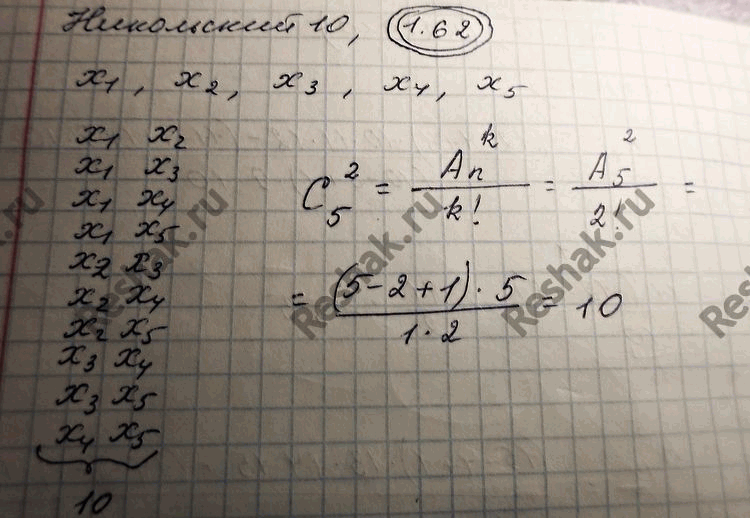 Никольский 10, 1.62
x₁, x₂, x₃, x₄, x₅
x₁ x₂
x₁ x₃
x₁ x₄
x₁ x₅
x₂ x₃
x₂ x₄
x₂ x₅
x₃ x₄
x₃ x₅
x₄ x₅
10
C₅² = Aₙᵏ / k! = A₅² / 2! =
= (5-2+1)·5 / 1·2 = 10
Reshak.ru
Reshak.ru
Reshak.ru
Reshak.ru